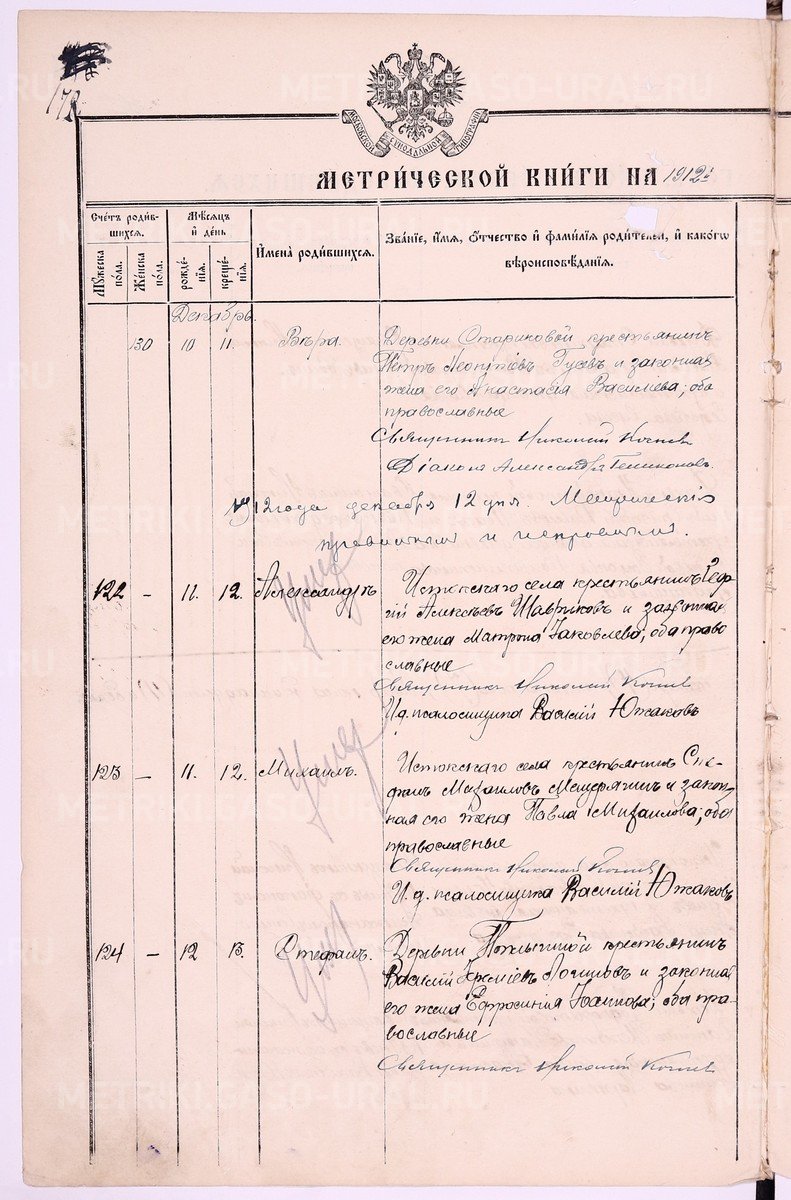 178
МОСКОВСКОЙ СѴНОДАЛЬНОЙ ТИПОГРАФІИ
МЕТРИ́ЧЕСКОЙ КНИ́ГИ НА 1912 г.
Сче́тъ роди́в-
шихся.
Мѣ́сяцъ
и҆ де́нь
И҆мена̀ роди́вшихся.
Зва́нїе, и҆́мя, ѻ҆́тчество и҆ фами́лїя роди́телей, и҆ како́гѡ
вѣроисповѣ́данїя.
Мꙋ́жеска по́ла.
Же́нска по́ла.
рожде́нїя.
креще́нїя.
Декабрь.
130 10 11. Вѣра. Деревни Стариковой крестьянинъ
Петръ Леонтіевъ Гусевъ и законная
жена его Анастасія Василіева, оба
православные
Священникъ Николай
Діаконъ Александръ
1912 года декабря 12 дня.
122 – 11. 12. Александръ Истокскаго села крестьянинъ Геор-
гій Алексѣевъ Шавриковъ и законная
его жена Матрона Іаковлева, оба право-
славные
Умер
Священникъ Николай
И. д. псаломщика Василій Южаковъ
123 – 11. 12. Михаилъ. Истокскаго села крестьянинъ Сте-
фанъ Михаиловъ Мещрягинъ и закон-
ная его жена Павла Михаилова, оба
православные
Умер
Священникъ Николай
И. д. псаломщика Василій Южаковъ
124 – 12 13. Стефанъ. Деревни крестьянинъ
Василій Логиновъ и законная
его жена Евфросинія оба пра-
вославные
Умер
Священникъ Николай
METRIKI.GASO-URAL.RU